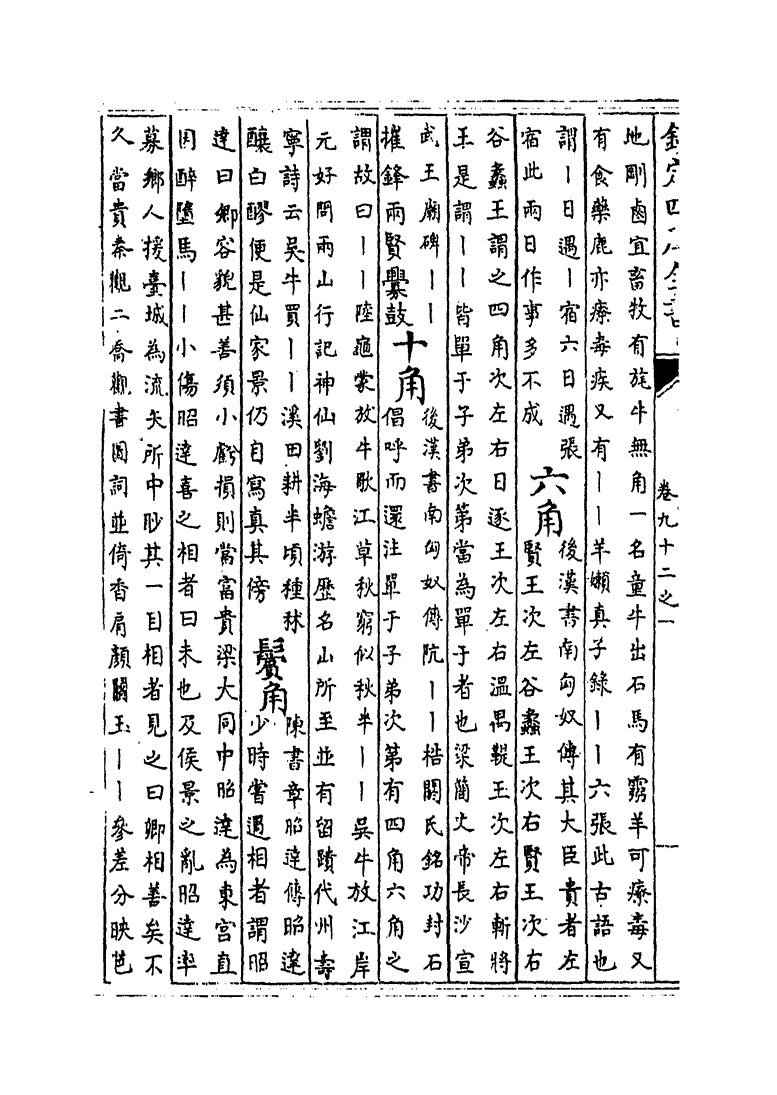 欽定四庫全書
卷九十二之一
地剛鹵宜畜牧有旄牛無角一名童牛出石馬有羚羊可療毒又
有食藥鹿亦療毒疾又有丨丨羊嬾真子錄丨丨六張此古語也
謂丨日遇丨宿六日遇張
宿此兩日作事多不成
六角
後漢書南匈奴傳其大臣貴者左
賢王次左谷蠡王次右賢王次右
谷蠡王謂之四角次左右日逐王次左右溫禺鞮王次左右斬將
王是謂丨丨皆單于子弟次第當為單于者也梁簡文帝長沙宣
武王廟碑丨丨
摧鋒兩賢釁鼓
十角
後漢書南匈奴傳阬丨丨梏閼氏銘功封石
倡呼而還注單于子弟次第有四角六角之
謂故曰丨丨陸龜蒙放牛歌江草秋窮似秋半丨丨吳牛放江岸
元好問兩山行記神仙劉海蟾游歷名山所至並有留蹟代州壽
寧詩云吳牛買丨丨溪田耕半頃種秫
釀白醪便是仙家景仍自寫真其傍
鬢角
陳書章昭達傳昭達
少時嘗遇相者謂昭
達曰卿容貌甚善須小虧損則當富貴梁大同中昭達為東宮直
因醉墮馬丨丨小傷昭達喜之相者曰未也及侯景之亂昭達率
募鄉人援臺城為流矢所中眇其一目相者見之曰卿相善矣不
久當貴秦觀二喬觀書圖詞並倚香肩顏鬬玉丨丨參差分映芭